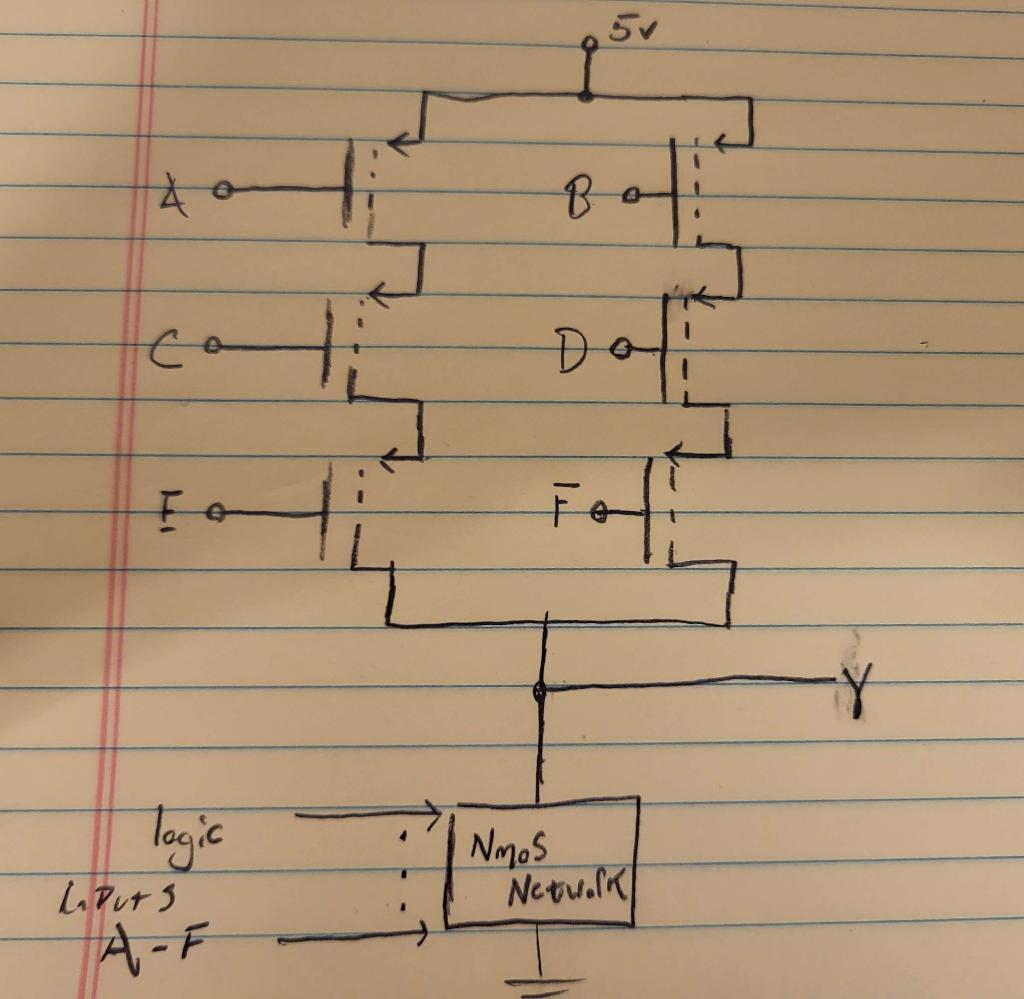 5v
A
B
C
D
E
F
Y
logic
NmoS
Network
InPuts
A - F